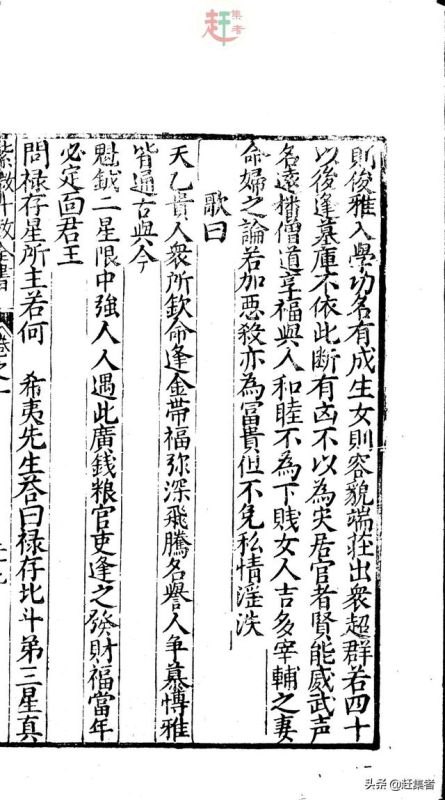 赶集者
則俊雅入學功名有成生女則容貌端莊出衆超群若四十
以後逢墓庫不依此断有凶不以為灾居官者賢能威武声
名遠播僧道享福與人和睦不為下賤女人吉多宰輔之妻
命婦之論若加惡殺亦為冨貴但不免私情滛泆
歌曰
天乙貴人衆所欽命逢金帯福弥深飛騰名譽人争慕博雅
皆通古與今
魁鉞二星限中強人人遇此廣錢粮官吏逢之發財福當年
必定面君王
問禄存星所主若何 希夷先生答曰禄存北斗第三星真
紫微斗数全書 卷之一
头条 @赶集者